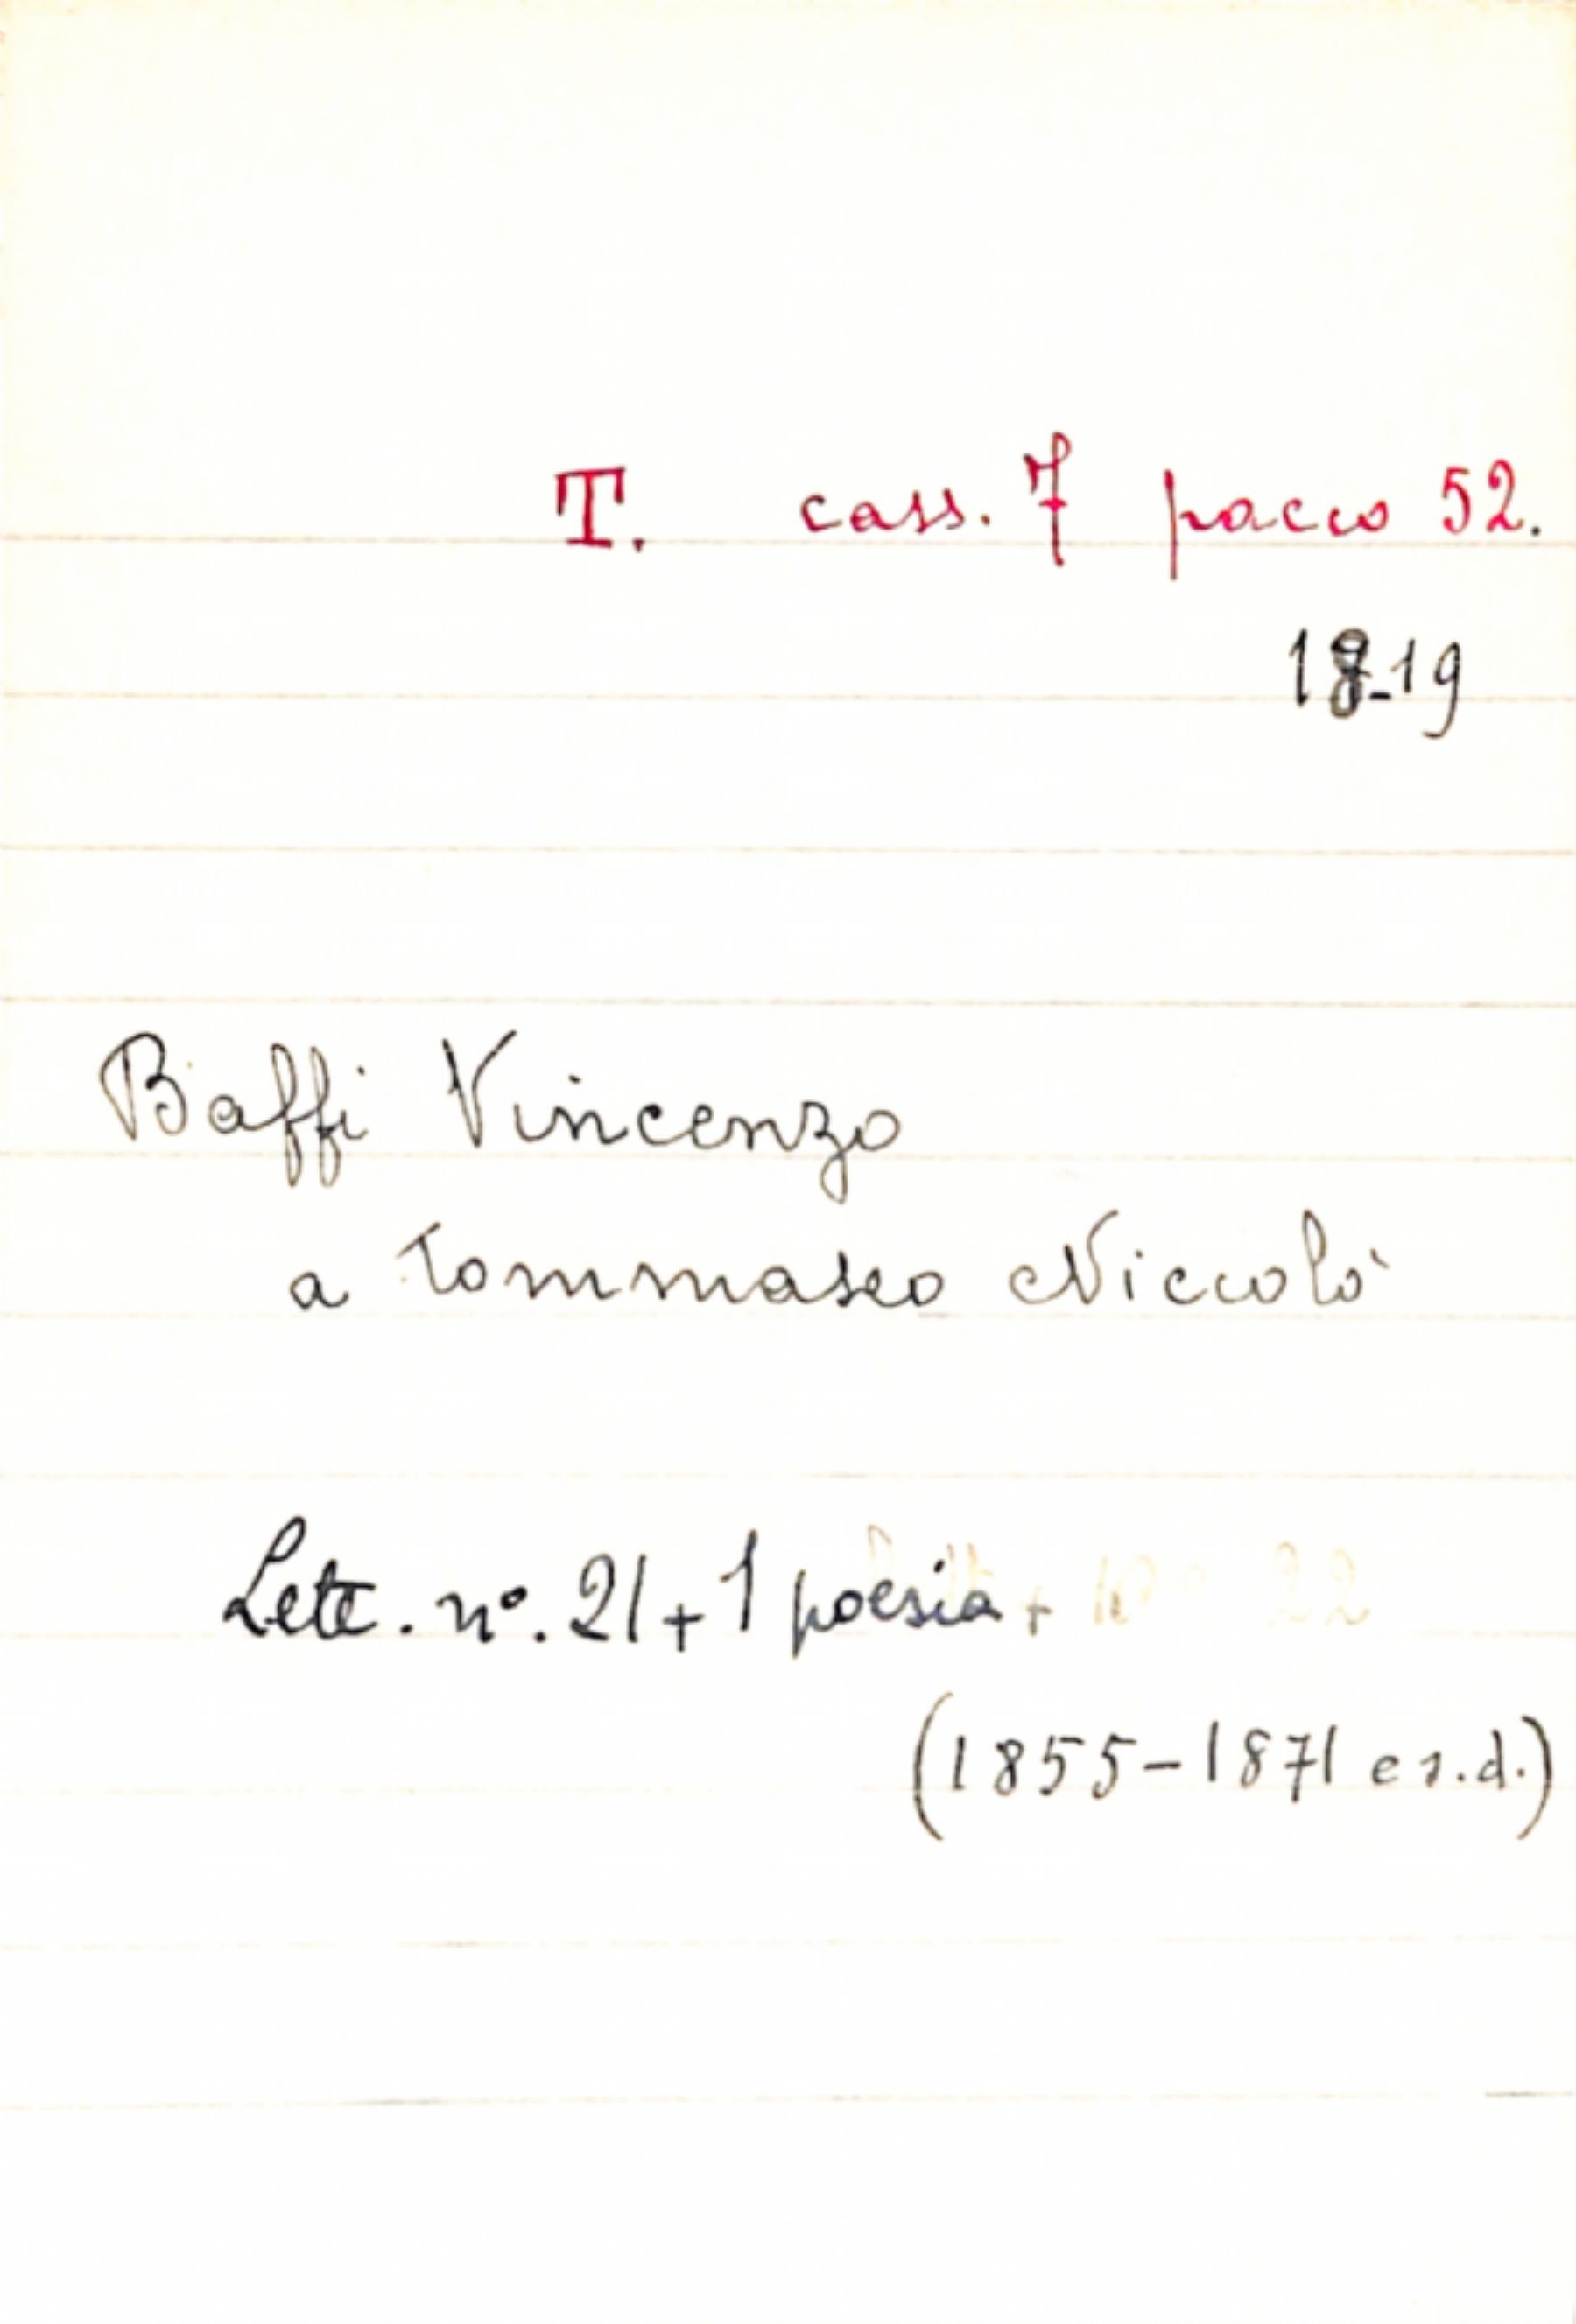 T. cass. 7 pacco 52.
18-19
Baffi Vincenzo
a Tommaseo Niccolò
Lett. n°. 21 + 1 poesia +
(1855-1871 e s.d.)